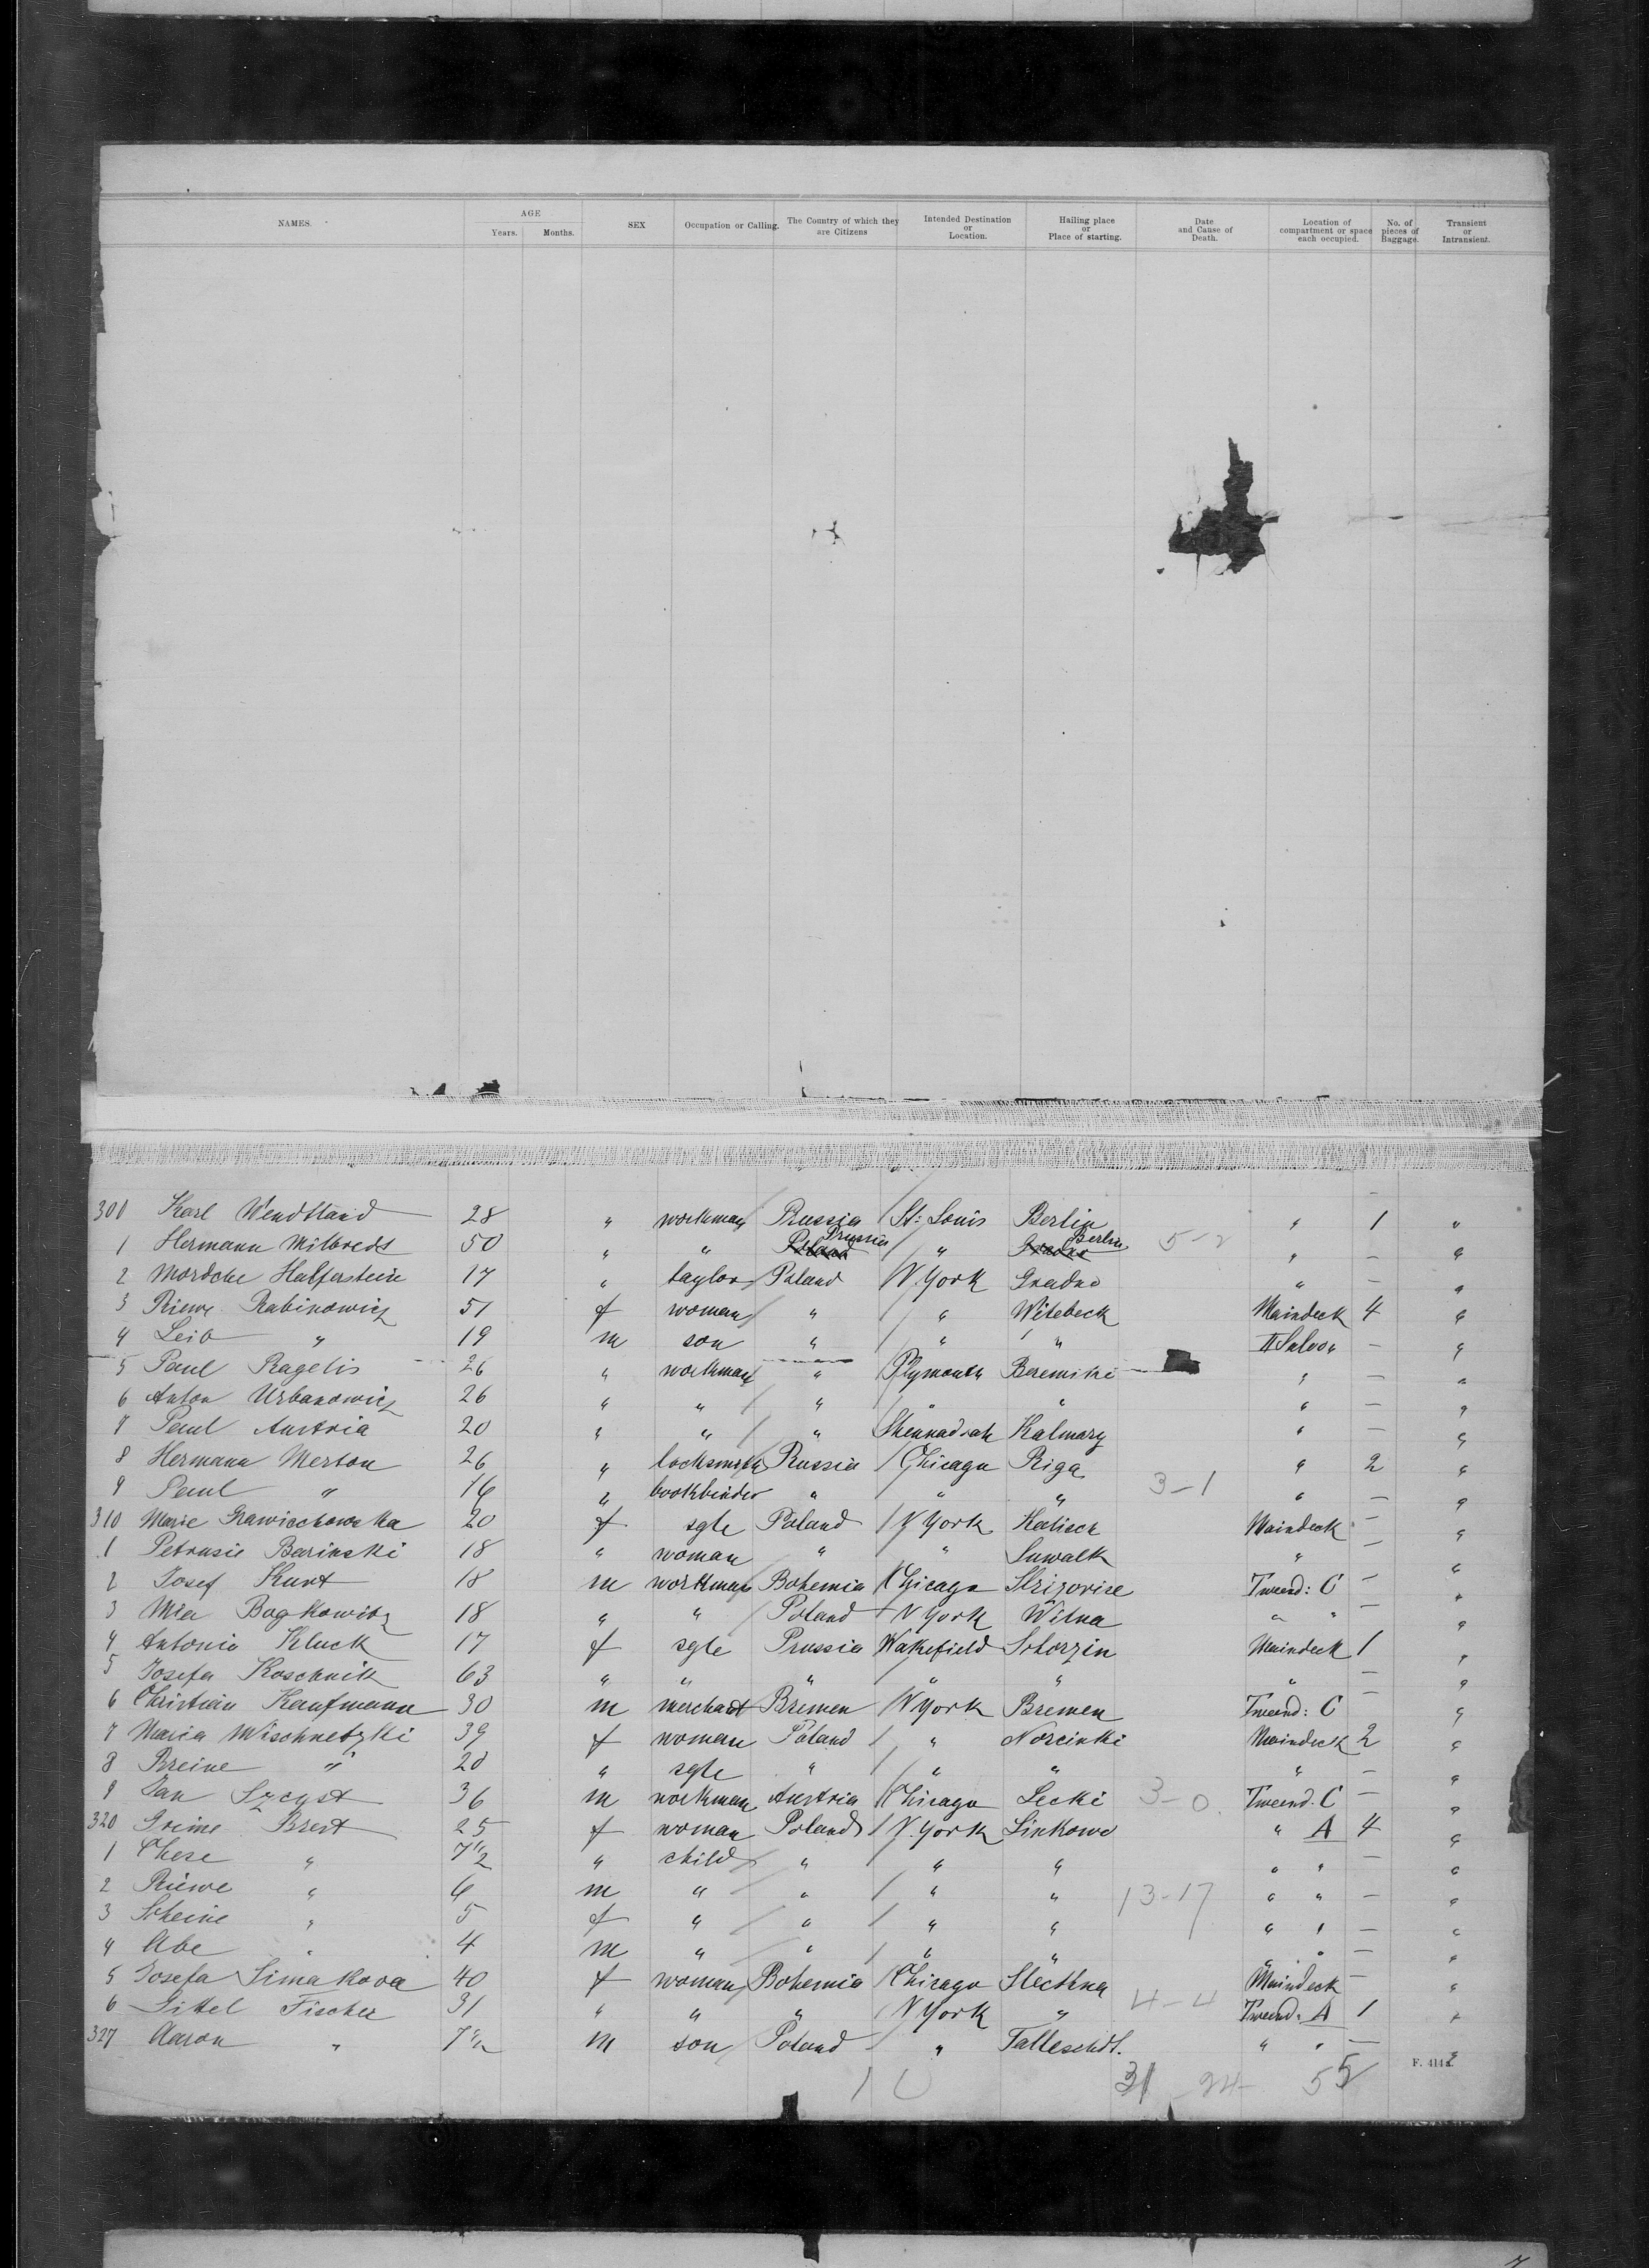 NAMES. AGE Years. Months. SEX Occupation or Calling. The Country of which they are Citizens Intended Destination or Location. Hailing place or Place of starting. Date and Cause of Death. Location of compartment or space each occupied. No. of pieces of Baggage. Transient or Intransient.
300 Karl Wendtland 28 " workman Prussia St: Louis Berlin " 1 "
1 Hermann Milbredt 50 " " Poland Prussia " Grodno Berlin 5-2 " — "
2 Mordche Halferstein 17 " taylor Poland N. York Grodno " — "
3 Riewe Rabinowicz 51 f woman " " Witebeck Maindeck 4 "
4 Leib " 19 m son " " " II Saloon — "
5 Paul Ragelis 26 " workman " Plymouth Beremiki " — "
6 Anton Urbanowicz 26 " " " " " " — "
7 Paul Austria 20 " " " Shennadoah Kalmary " — "
8 Hermann Merton 26 " locksmith Russia Chicago Riga " 2 "
9 Paul " 16 " bookbinder " " " 3-1 " — "
310 Marie Grawischowska 20 f sgle Poland N York Kalisch Maindeck — "
1 Petrusie Barinski 18 " woman " " Suwalk " — "
2 Josef Kunt 18 m workman Bohemia Chicago Skrizovice Tweend: C — "
3 Mia Bogkowitz 18 " " Poland N York Wilna " " — "
4 Antonia Kluck 17 f sgle Prussia Wakefield Schorzin Maindeck 1 "
5 Josefa Koschnik 63 " " " " " " — "
6 Christian Kaufmann 30 m merchant Bremen N York Bremen Tweend: C — "
7 Maria Wischnetzki 39 f woman Poland " Norcinki Maindeck 2 "
8 Breine " 20 " sgle " " " " — "
9 Jan Szcyst 36 m workman Austria Chicago Lecki 3-0. Tweend. C — "
320 Grime Brest 25 f woman Poland N. York Linkowo " A 4 "
1 Chese " 7 1/2 " child " " " " " — "
2 Riewe " 6 m " " " " 13-17 " " — "
3 Scheine " 5 f " " " " " " — "
4 Abe " 4 m " " " " " " — "
5 Josefa Simakova 40 f woman Bohemia Chicago Slecthna Maindeck — "
6 Gittel Fischer 31 " " " N York " 4-4 Tweend. A 1 "
327 Aaron " 7 1/2 m son Poland " Talleschdl. " " — "
F. 414
10 31 24 55